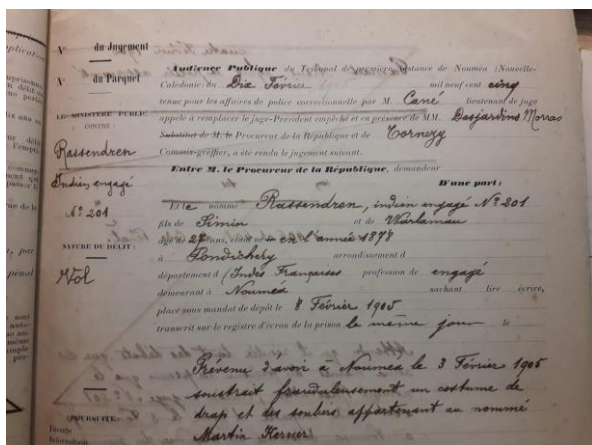 N° du Jugement
N° du Parquet
LE MINISTÈRE PUBLIC
CONTRE :
Rassendren
Indien engagé
N° 201
NATURE DU DÉLIT :
Vol
POURSUITE :
Directe
Audience Publique du Tribunal de première instance de Nouméa (Nouvelle-
Calédonie) du Dix Février mil neuf cent cinq
tenue pour les affaires de police correctionnelle par M. Cané lieutenant de juge
appelé à remplacer le juge-Président empêché et en présence de MM. Desjardins Morras
Substitut de M. le Procureur de la République et de Tornezy
Commis-greffier, a été rendu le jugement suivant.
Entre M. le Procureur de la République, demandeur
D'une part:
Et le nommé Rassendren, indien engagé N° 201
fils de Simin et de Warlaman
âgé de 27 ans, né en l'année 1878
à Pondichery arrondissement d
département d (Indes Françaises profession de engagé
demeurant à Nouméa sachant lire écrire,
placé sous mandat de dépôt le 8 Février 1905
transcrit sur le registre d'écrou de la prison le même jour le
Prévenu d'avoir à Nouméa le 3 Février 1905
soustrait frauduleusement un costume de
drap et des souliers appartenant au nommé
Martin Kerner